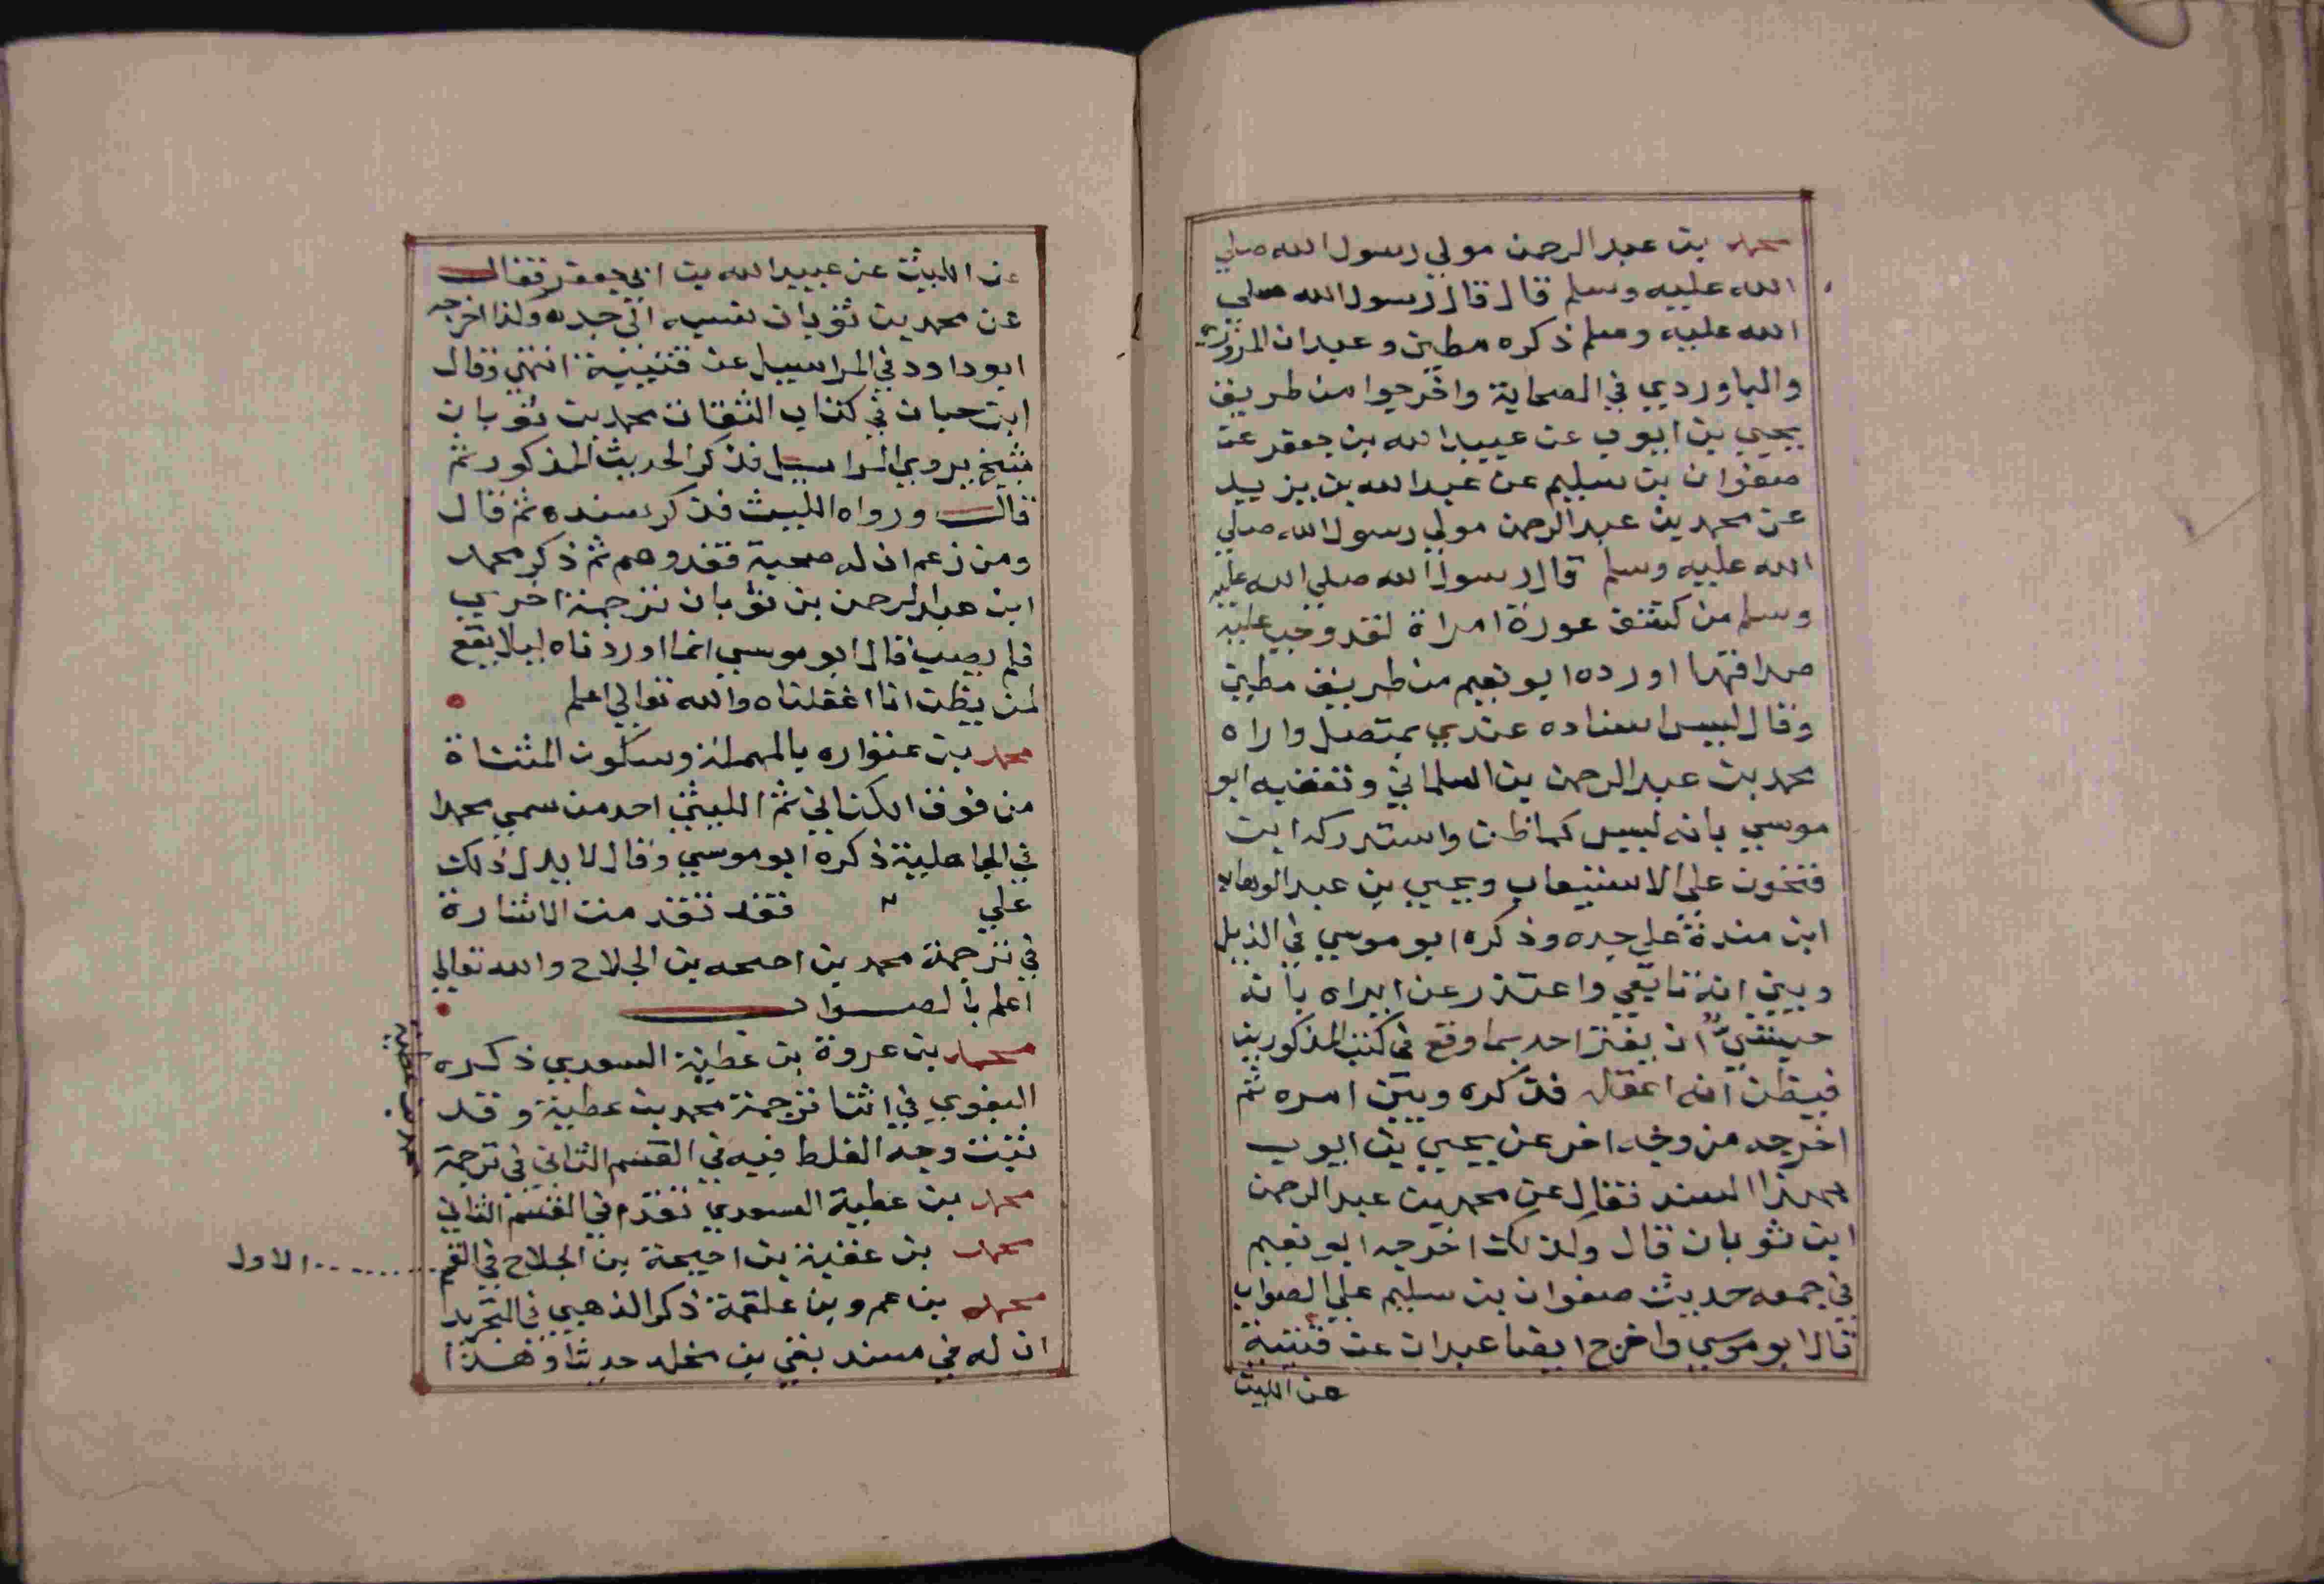 محمد بن عبد الرحمن مولي رسول الله صلي
الله عليه وسلم قال قال رسول الله صلي
الله عليه وسلم ذكره مطين وعبدان المروزي
والباوردي في الصحابة واخرجوا من طريق
يحيي بن ايوب عن عبيد الله بن جعفر عن
صفوان بن سليم عن عبد الله بن يزيد
عن محمد بن عبد الرحمن مولي رسول الله صلي
الله عليه وسلم قال رسول الله صلي الله عليه
وسلم من كشف عورة امراة لقد وجب عليه
صداقها اورده ابو نعيم من طريق مطين
وقال ليس اسناده عندي بمتصل واراه
محمد بن عبد الرحمن بن السلماني وتعقبه ابو
موسي بانه ليس كما ظن واستدركه ابن
فتحون علي الاستيعاب ويحيي بن عبد الوهاب
ابن مندة علي جده وذكره ابو موسي في الذيل
وبين انه تابعي واعتذر عن ايراه بانه
خشي ان يغتر احد بما وقع في كتب المذكورين
فيظن انه اغفل فذكره وبين امره ثم
اخرجه من وجه اخر عن يحيي بن ايوب
بهذا السند فقال عن محمد بن عبد الرحمن
ابن ثوبان قال وكذلك اخرجه ابو نعيم
في جمعه حديث صفوان بن سليم علي الصواب
قال ابو موسي واخرج ايضا عبدان عن قتيبة
عن الليث
عن الليث عن عبيد الله بن ابي جعفر فقال
عن محمد بن ثوبان نسبه الي جده ولذا اخرجه
ابو داود في المراسيل عن قتيبة انتهي وقال
ابن حبان في كتاب الثقات محمد بن ثوبان
شيخ يروي المراسيل فذكر الحديث المذكور ثم
قال ورواه الليث فذكر سنده ثم قال
ومن زعم ان له صحبة فقد وهم ثم ذكر محمد
ابن عبد الرحمن بن ثوبان ترجمة اخري
فلم يصب قال ابو موسي انما اوردناه ليلا يقع
لمن يظن انا اغفلناه والله تعالي اعلم
محمد بن عتواره بالمهملة وسكون المثناة
من فوق الكناني ثم الليثي احد من سمي محمدا
في الجاهلية ذكره ابو موسي وقال لا يدل ذلك
علي فقد تقدمت الاشارة
في ترجمة محمد بن احيحه بن الجلاح والله تعالي
اعلم بالصواب
محمد بن عروة بن عطية السعدي ذكره
البغوي في اثنا ترجمة محمد بن عطية وقد
بينت وجه الغلط فيه في القسم الثاني في ترجمة
محمد بن عطية
محمد بن عطية السعدي تقدم في القسم الثاني
محمد بن عقبة بن احيحة بن الجلاح في القسم الاول
محمد بن عمرو بن علقمة ذكر الذهبي في التجريد
ان له في مسند بقي بن مخلد حديثا وهذا